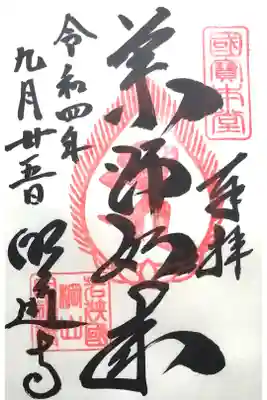 國寳本堂
奉拝
薬師如来
令和四年
九月廿五日
明通寺
若狭國
棡山